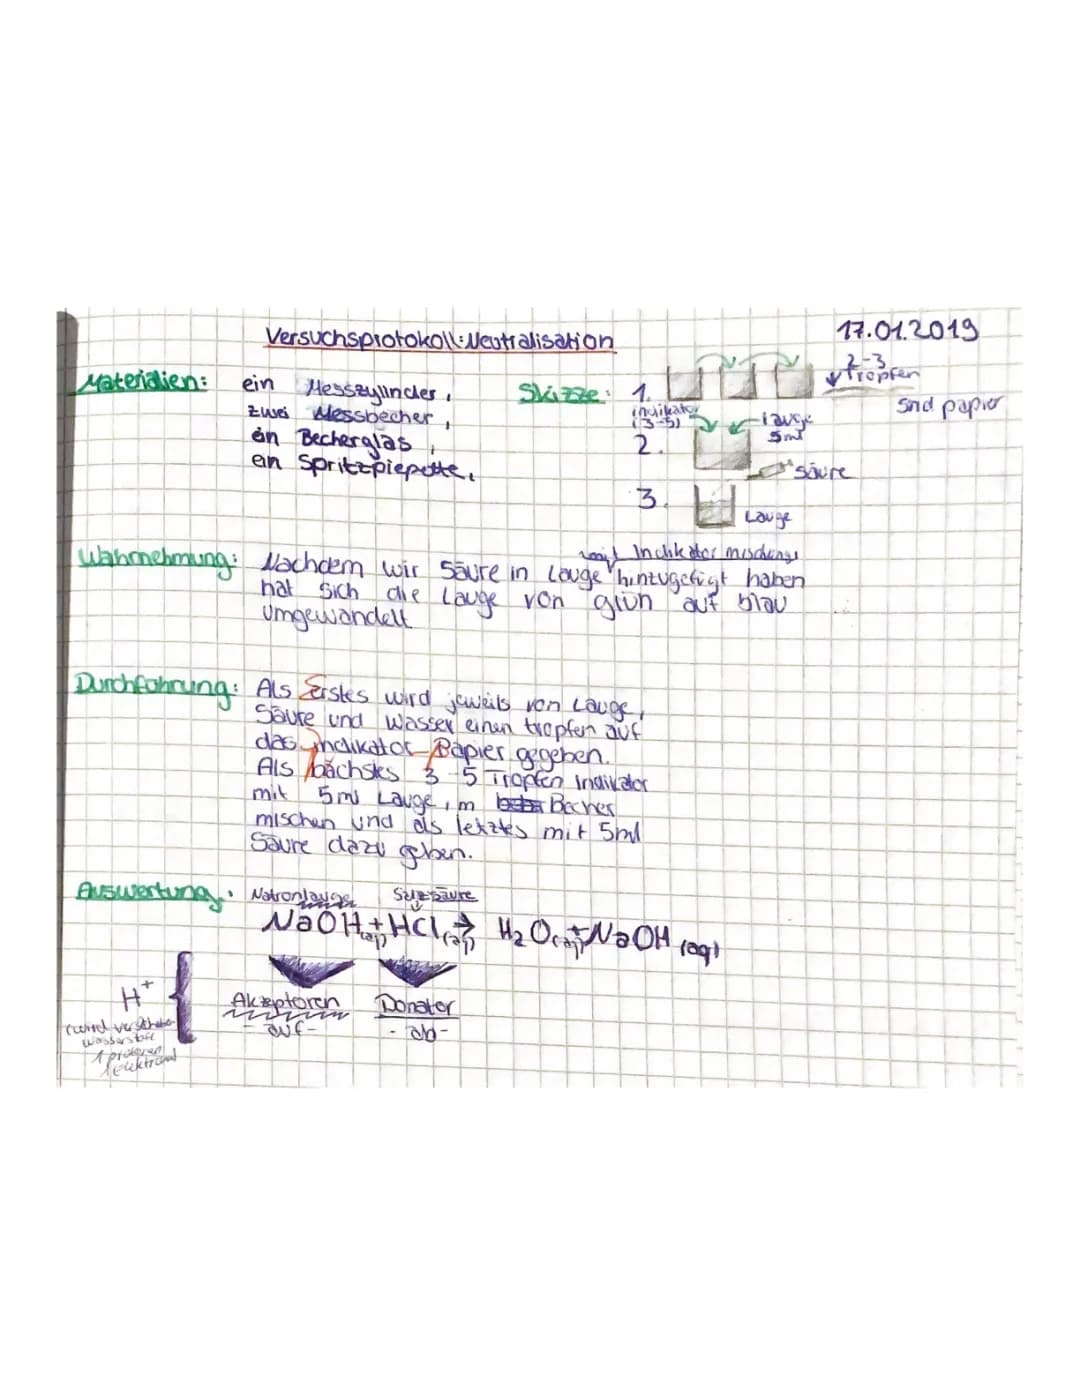 Versuchsprotokoll: Neutralisation
17.01.2019
Materialien: ein Messzylinder,
zwei Messbecher,
ein Becherglas,
ein Spritzpiepette.
Skizze: 1.
2-3
Tropfen
sind papier
indikator
(3-5)
2.
Lauge
5ml
Säure
3.
Lauge
Wahrnehmung: Nachdem wir Säure in Lauge hinzugefügt haben
mit Indikator mischung
hat sich die Lauge von grün auf blau
umgewandelt
Durchführung: Als Erstes wird jeweils von Lauge,
Säure und Wasser einen tropfen auf
das indikator-Papier gegeben.
Als nächstes 3-5 Tropfen Indikator
mit 5ml Lauge im Becher
mischen und als letztes mit 5ml
Säure dazu geben.
Auswertung: Natronlauge Salzsäure
NaOH(aq) + HCl(aq) → H₂O(aq) + NaOH (aq)
Akzeptoren Donator
- auf - - ab -
H⁺
(wird verschoben
Wasserstoff
1 protonen